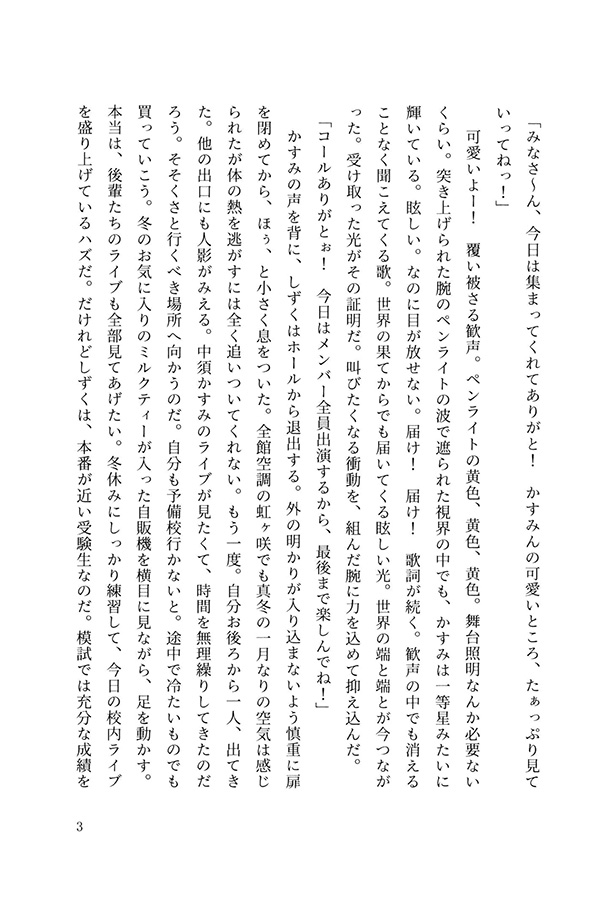 「みなさ～ん、今日は集まってくれてありがと！　かすみんの可愛いところ、たぁっぷり見て
いってねっ！」
可愛いよー！　覆い被さる歓声。ペンライトの黄色、黄色、黄色。舞台照明なんか必要ない
くらい。突き上げられた腕のペンライトの波で遮られた視界の中でも、かすみは一等星みたいに
輝いている。眩しい。なのに目が放せない。届け！　届け！　歌詞が続く。歓声の中でも消える
ことなく聞こえてくる歌。世界の果てからでも届いてくる眩しい光。世界の端と端とが今つなが
った。受け取った光がその証明だ。叫びたくなる衝動を、組んだ腕に力を込めて抑え込んだ。
「コールありがとぉ！　今日はメンバー全員出演するから、最後まで楽しんでね！」
かすみの声を背に、しずくはホールから退出する。外の明かりが入り込まないよう慎重に扉
を閉めてから、ほぅ、と小さく息をついた。全館空調の虹ヶ咲でも真冬の一月なりの空気は感じ
られたが体の熱を逃がすには全く追いついてくれない。もう一度。自分お後ろから一人、出てき
た。他の出口にも人影がみえる。中須かすみのライブが見たくて、時間を無理繰りしてきたのだ
ろう。そそくさと行くべき場所へ向かうのだ。自分も予備校行かないと。途中で冷たいものでも
買っていこう。冬のお気に入りのミルクティーが入った自販機を横目に見ながら、足を動かす。
本当は、後輩たちのライブも全部見てあげたい。冬休みにしっかり練習して、今日の校内ライブ
を盛り上げているハズだ。だけれどしずくは、本番が近い受験生なのだ。模試では充分な成績を
3